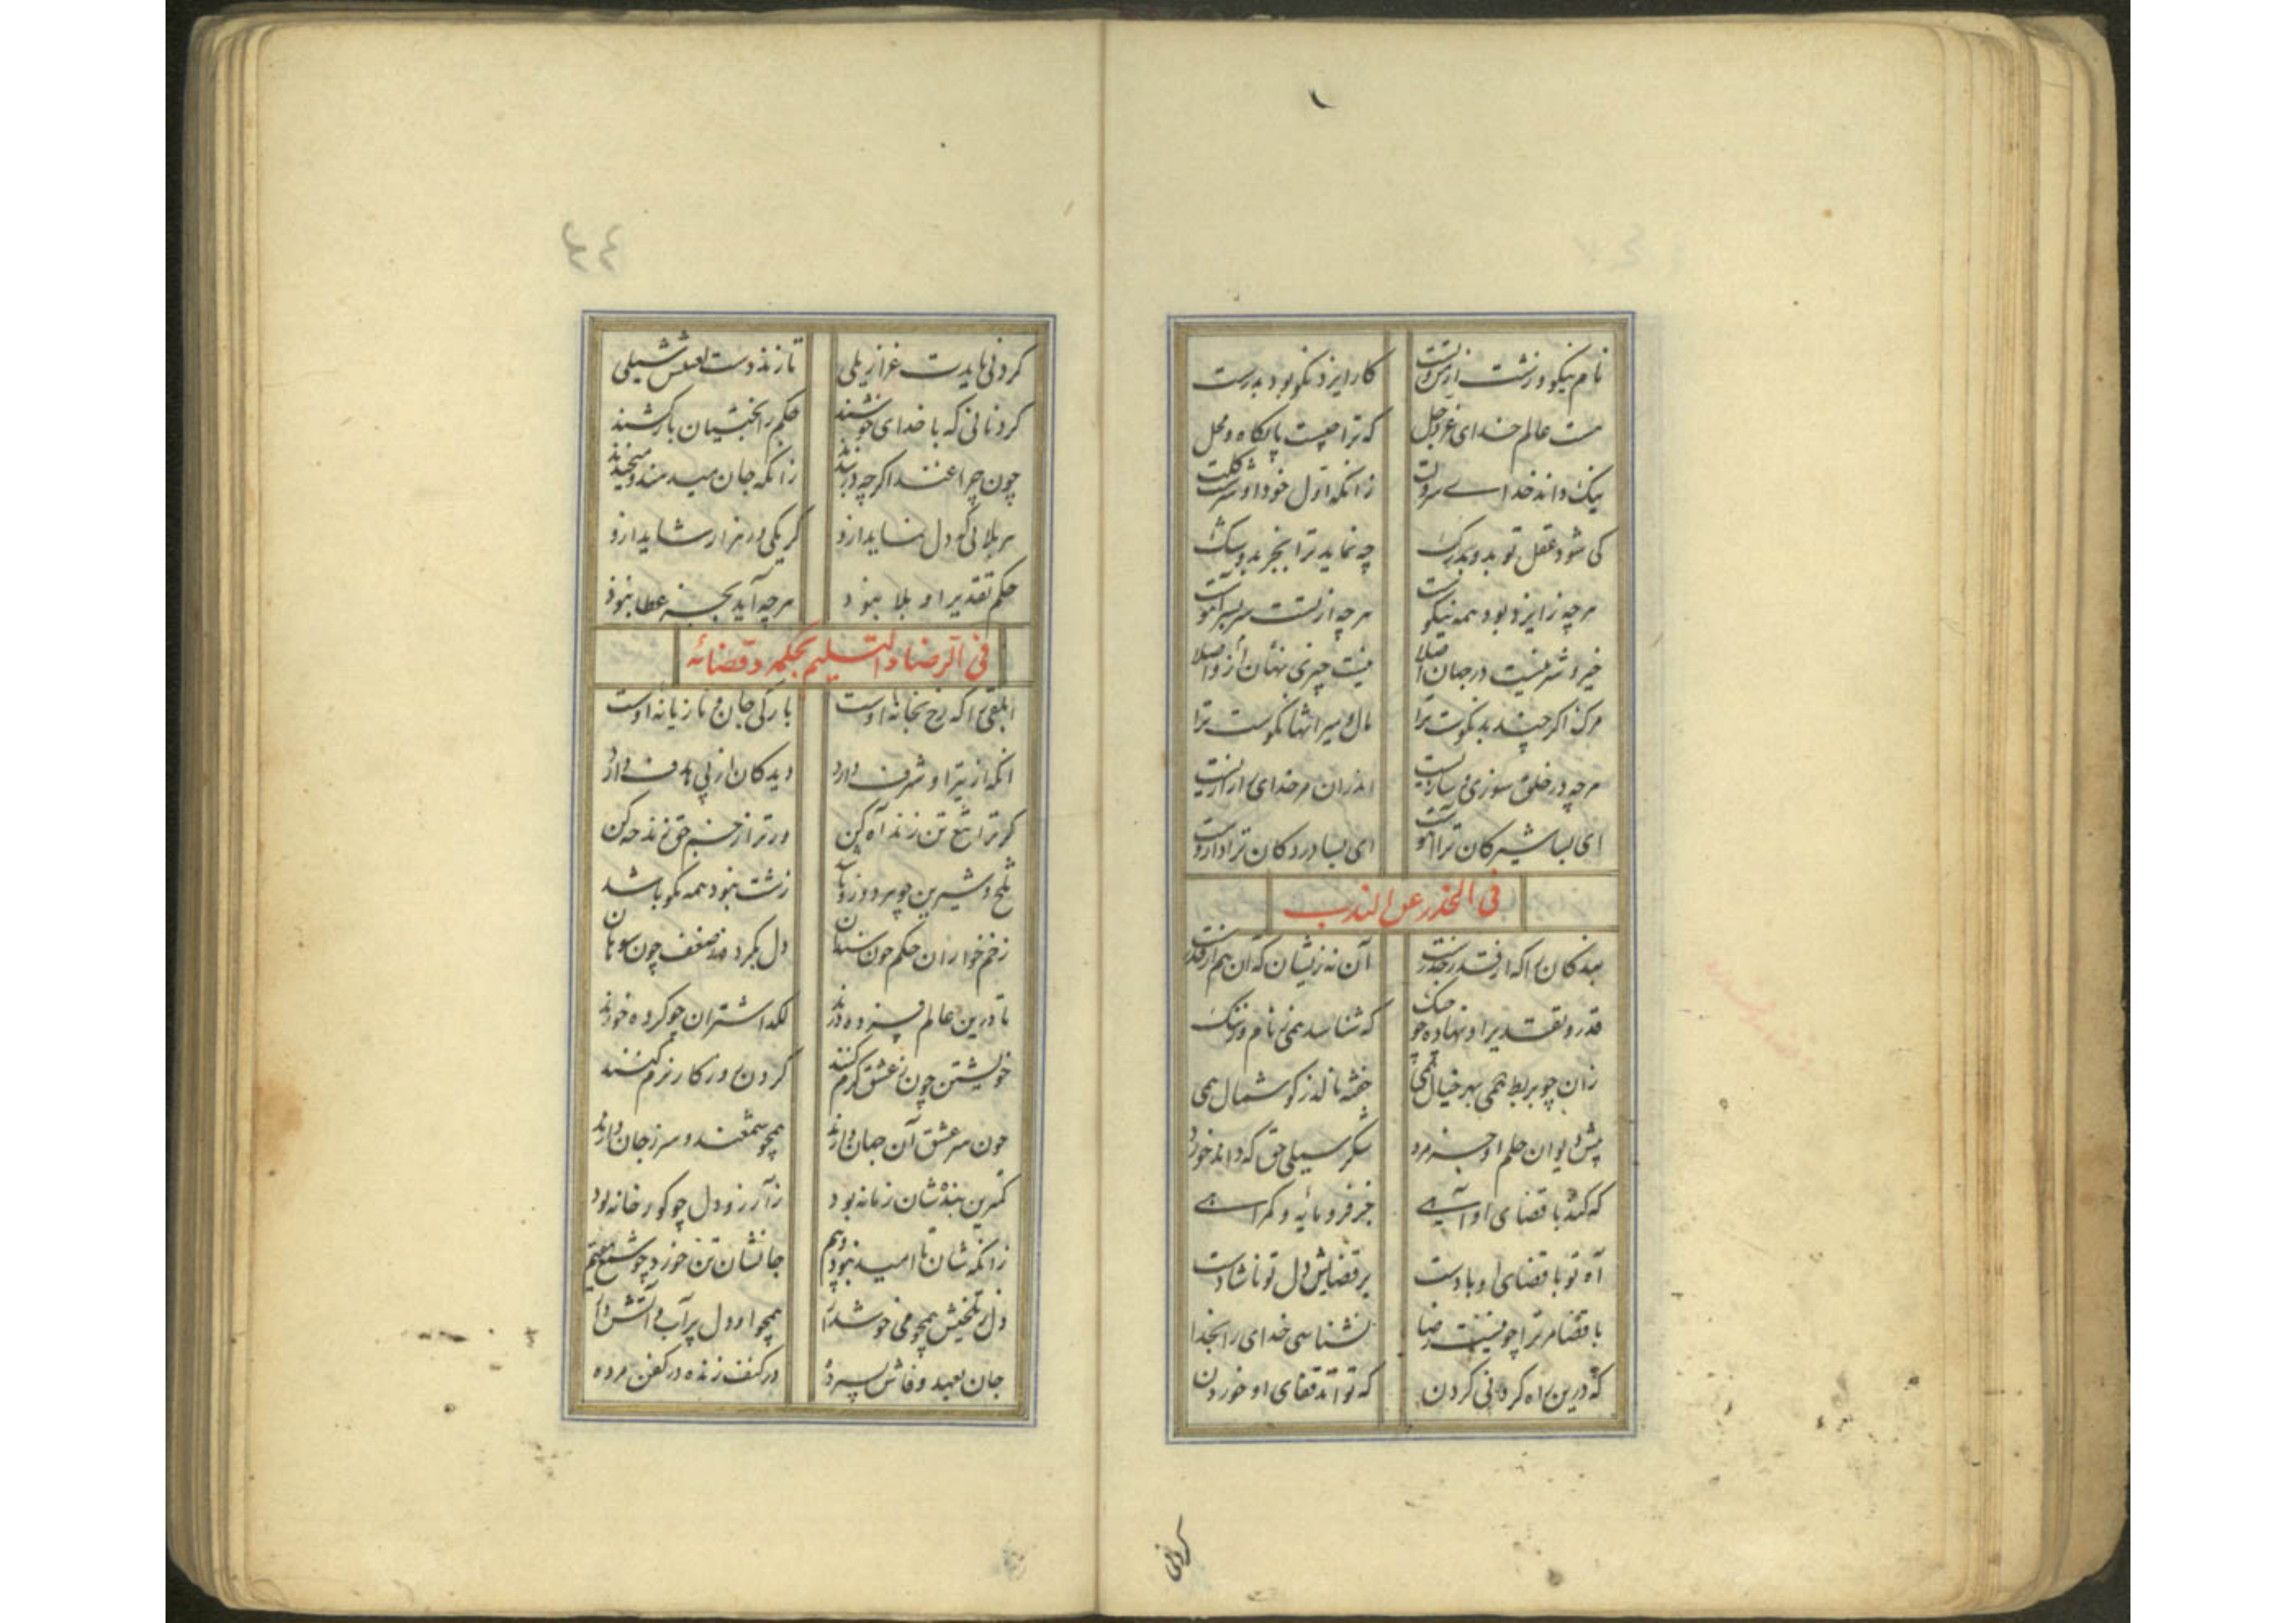 نام نیکو و زشت از من و تست کار ایزد نکو بود بدرست
هست عالم خدای عز و جل که ترا چیست پایگاه و محل
نیک داند خدای سرولت زانکه اول خود او سرشت گلت
کی شود عقل تو بد و بدرگ چه نماید ترا بجز بد و سگ
هرچه ز ایزد بود همه نیکوست هرچه از تست سربسر آهوست
خیر و شر نیست در جهان اصلا نیست چیزی نهان ازو اصلا
مرگ اگر چند بد نکوست ترا مال و میراثها نکوست ترا
هرچه در خلق سوزی و سازیست اندران مر خدای را رازیست
ای بسا شیر کان ترا آهوست ای بسا درد کان ترا داروست
فی الحذر عن الندب
بندگان را که از قدر حذرست آن نه زیشان که آن هم از قدرست
قدر و تقدیر او نهاده چو چنگ که شناسد همی نام و ز ننگ
زان چو بربط همی بهر خیال همی خفته نالد ز گوشمال همی
پیش ایوان حکم او جز مرد شکر سیلی حق که داند خورد
که کند با قضای او آهی جز فرومایه و گمراهی
آه تو با قضای او بادست بر قضایش دل تو ناشادست
با قضا مر ترا چو نیست رضا نشناسی خدای را بخدا
که درین راه کردنی کردن که تواند قفای او خوردن
گردنی
٤٤
کردنی بایدت عزازیلی تا زند دست لعنتش سیلی
گردنانی که با خدای خوشند حکم را بختیان بارکشند
چون چراغند اگرچه در بندند زانکه جان میدهند و میخندند
هر بلائی که دل نماید ازو گر یکی ور هزار شاید ازو
حکم تقدیر او بلا نبود هرچه آید بجز عطا نبود
فی الرضا والتسلیم بحکمه وقضائه
ابلقی را که رخ بخانه اوست بارگی جان و تازیانه اوست
آنکه از تیر او شرف دارد دیدگان از پی هدف دارد
گر ترا تیغ تن زند آه کن ور ترا زخم حق زند خه کن
تلخ و شیرین چو هر دو زو باشد زشت نبود همه نکو باشد
زخم خواران حکم چون سندان دل بکردند ضعف چون سوهان
تا درین عالم فسرده درند لگد اشتران چو کرده خورند
خویشتن چون ز عشق گرم کنند گردن در کار نرم کنند
چون سر عشق آن جهان دارند همچو شمعند و سر ز جان دارند
کمترین بندشان زمانه بود زآرزو دل چو گورخانه بود
زانکه شان تا امید نبود و بیم جانشان تن خورد چو شمع مقیم
دل ز تلخیش همچو می خوش دار همچو او دل پر آب و آتش دار
جان بعهد وفاش بسپرده در کنف زنده در کفن مرده